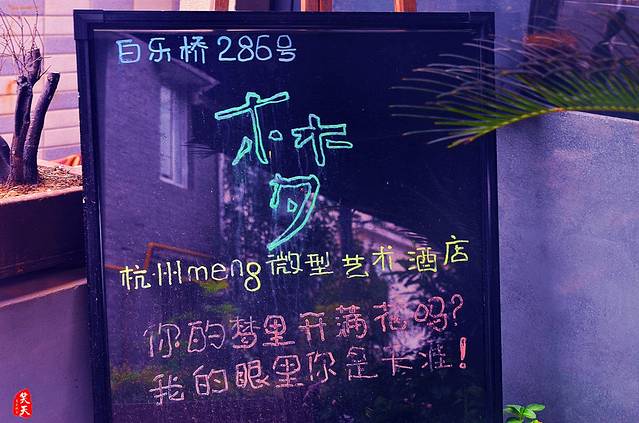 白乐桥286号
梦
杭州meng微型艺术酒店
你的梦里开满花吗?
我的眼里你是卡准!
笑天